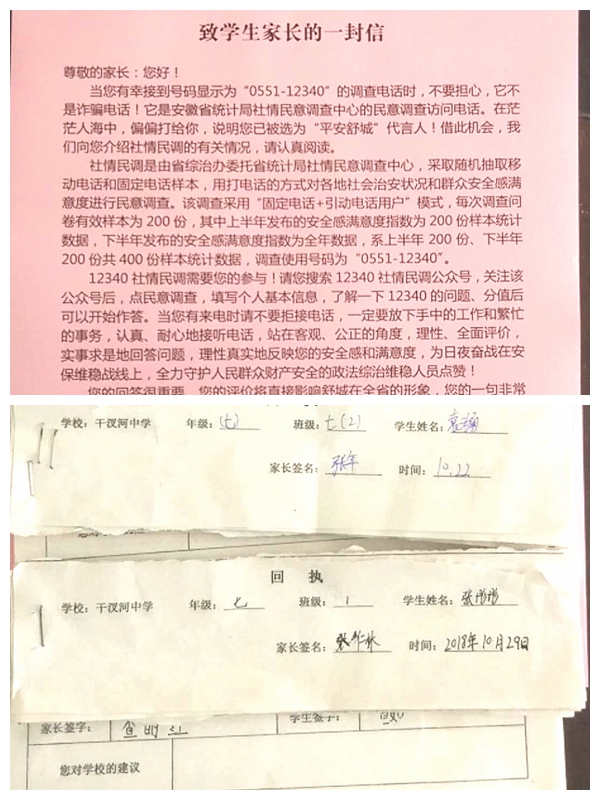 致学生家长的一封信
尊敬的家长：您好！
当您有幸接到号码显示为“0551-12340”的调查电话时，不要担心，它不
是诈骗电话！它是安徽省统计局社情民意调查中心的民意调查访问电话。在茫
茫人海中，偏偏打给你，说明您已被选为“平安舒城”代言人！借此机会，我
们向您介绍社情民调的有关情况，请认真阅读。
社情民调是由省综治办委托省统计局社情民意调查中心，采取随机抽取移
动电话和固定电话样本，用打电话的方式对各地社会治安状况和群众安全感满
意度进行民意调查。该调查采用“固定电话+引动电话用户”模式，每次调查问
卷有效样本为 200 份，其中上半年发布的安全感满意度指数为 200 份样本统计
数据，下半年发布的安全感满意度指数为全年数据，系上半年 200 份、下半年
200 份共 400 份样本统计数据，调查使用号码为“0551-12340”。
12340 社情民调需要您的参与！请您搜索 12340 社情民调公众号，关注该
公众号后，点民意调查，填写个人基本信息，了解一下 12340 的问题、分值后
可以开始作答。当您有来电时请不要拒接电话，一定要放下手中的工作和繁忙
的事务，认真、耐心地接听电话，站在客观、公正的角度，理性、全面评价，
实事求是地回答问题，理性真实地反映您的安全感和满意度，为日夜奋战在安
保维稳战线上，全力守护人民群众财产安全的政法综治维稳人员点赞！
您的回答很重要，您的评价将直接影响舒城在全省的形象，您的一句非常
学校：干汊河中学 年级：(七) 班级：七(2) 学生姓名：
家长签名： 时间：10.22
回 执
学校：干汊河中学 年级：七 班级：1 学生姓名：张彤彤
家长签名：张作林 时间：2018年10月29日
家长签字： 学生签字：
您对学校的建议